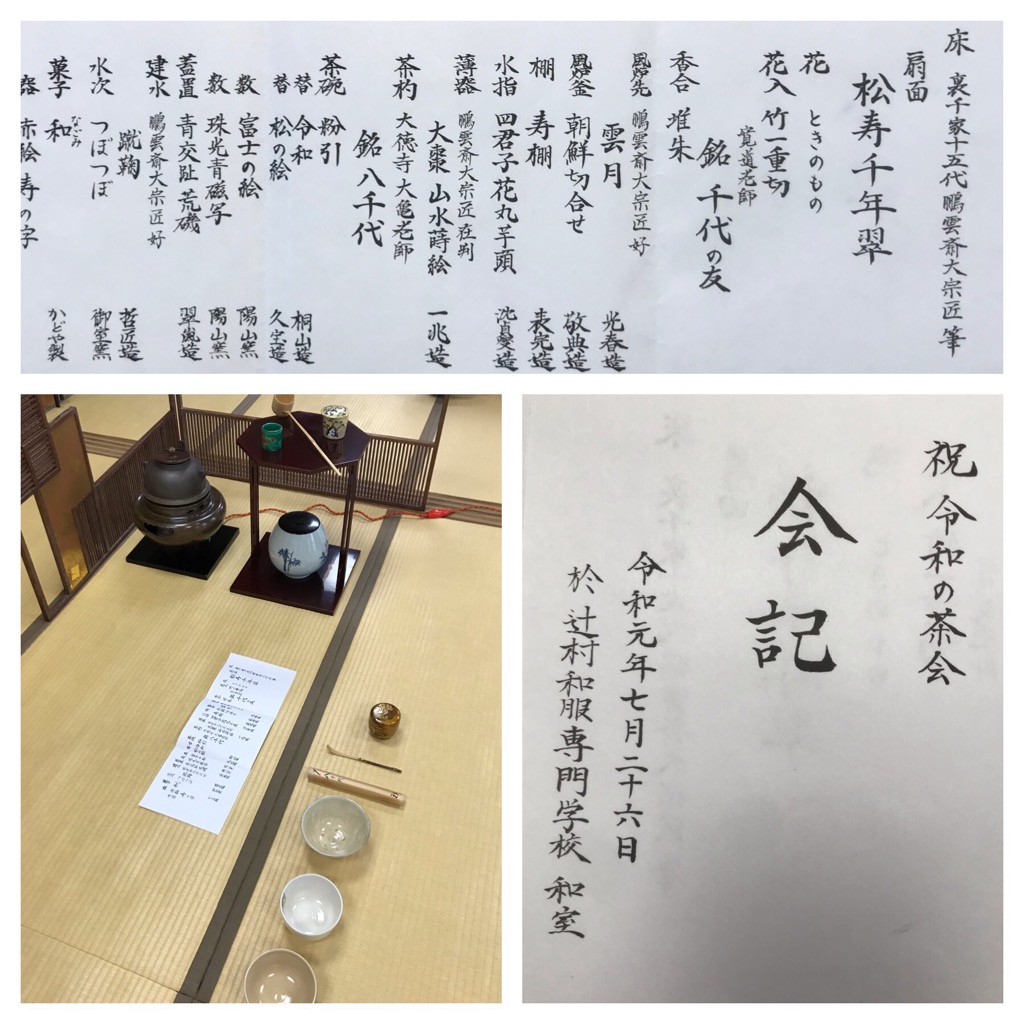 床 裏千家十五代鵬雲斎大宗匠 筆
扇面
松寿千年翠
花 ときのもの
花入 竹一重切
覚道老師
銘 千代の友
香合 堆朱
風炉先 鵬雲斎大宗匠 好
雲月 光春造
風炉釜 朝鮮切合せ 敬典造
棚 寿棚 表完造
水指 四君子花丸芋頭
薄器 鵬雲斎大宗匠 在判
大棗 山水蒔絵 一兆造
茶杓 大徳寺 大亀老師
銘 八千代
茶碗 粉引 桐山造
替 令和 久宝造
替 松の絵
数 富士の絵 陽山窯
数 珠光青磁写 陽山窯
蓋置 青交趾 荒磯 翠嵐造
建水 鵬雲斎大宗匠 好
蹴鞠 哲匠造
水次 つぼつぼ 御室窯
菓子 和 なごみ かどや製
器 赤絵 寿の字
祝 令和の茶会
会記
令和元年七月二十六日
於 辻村和服専門学校 和室